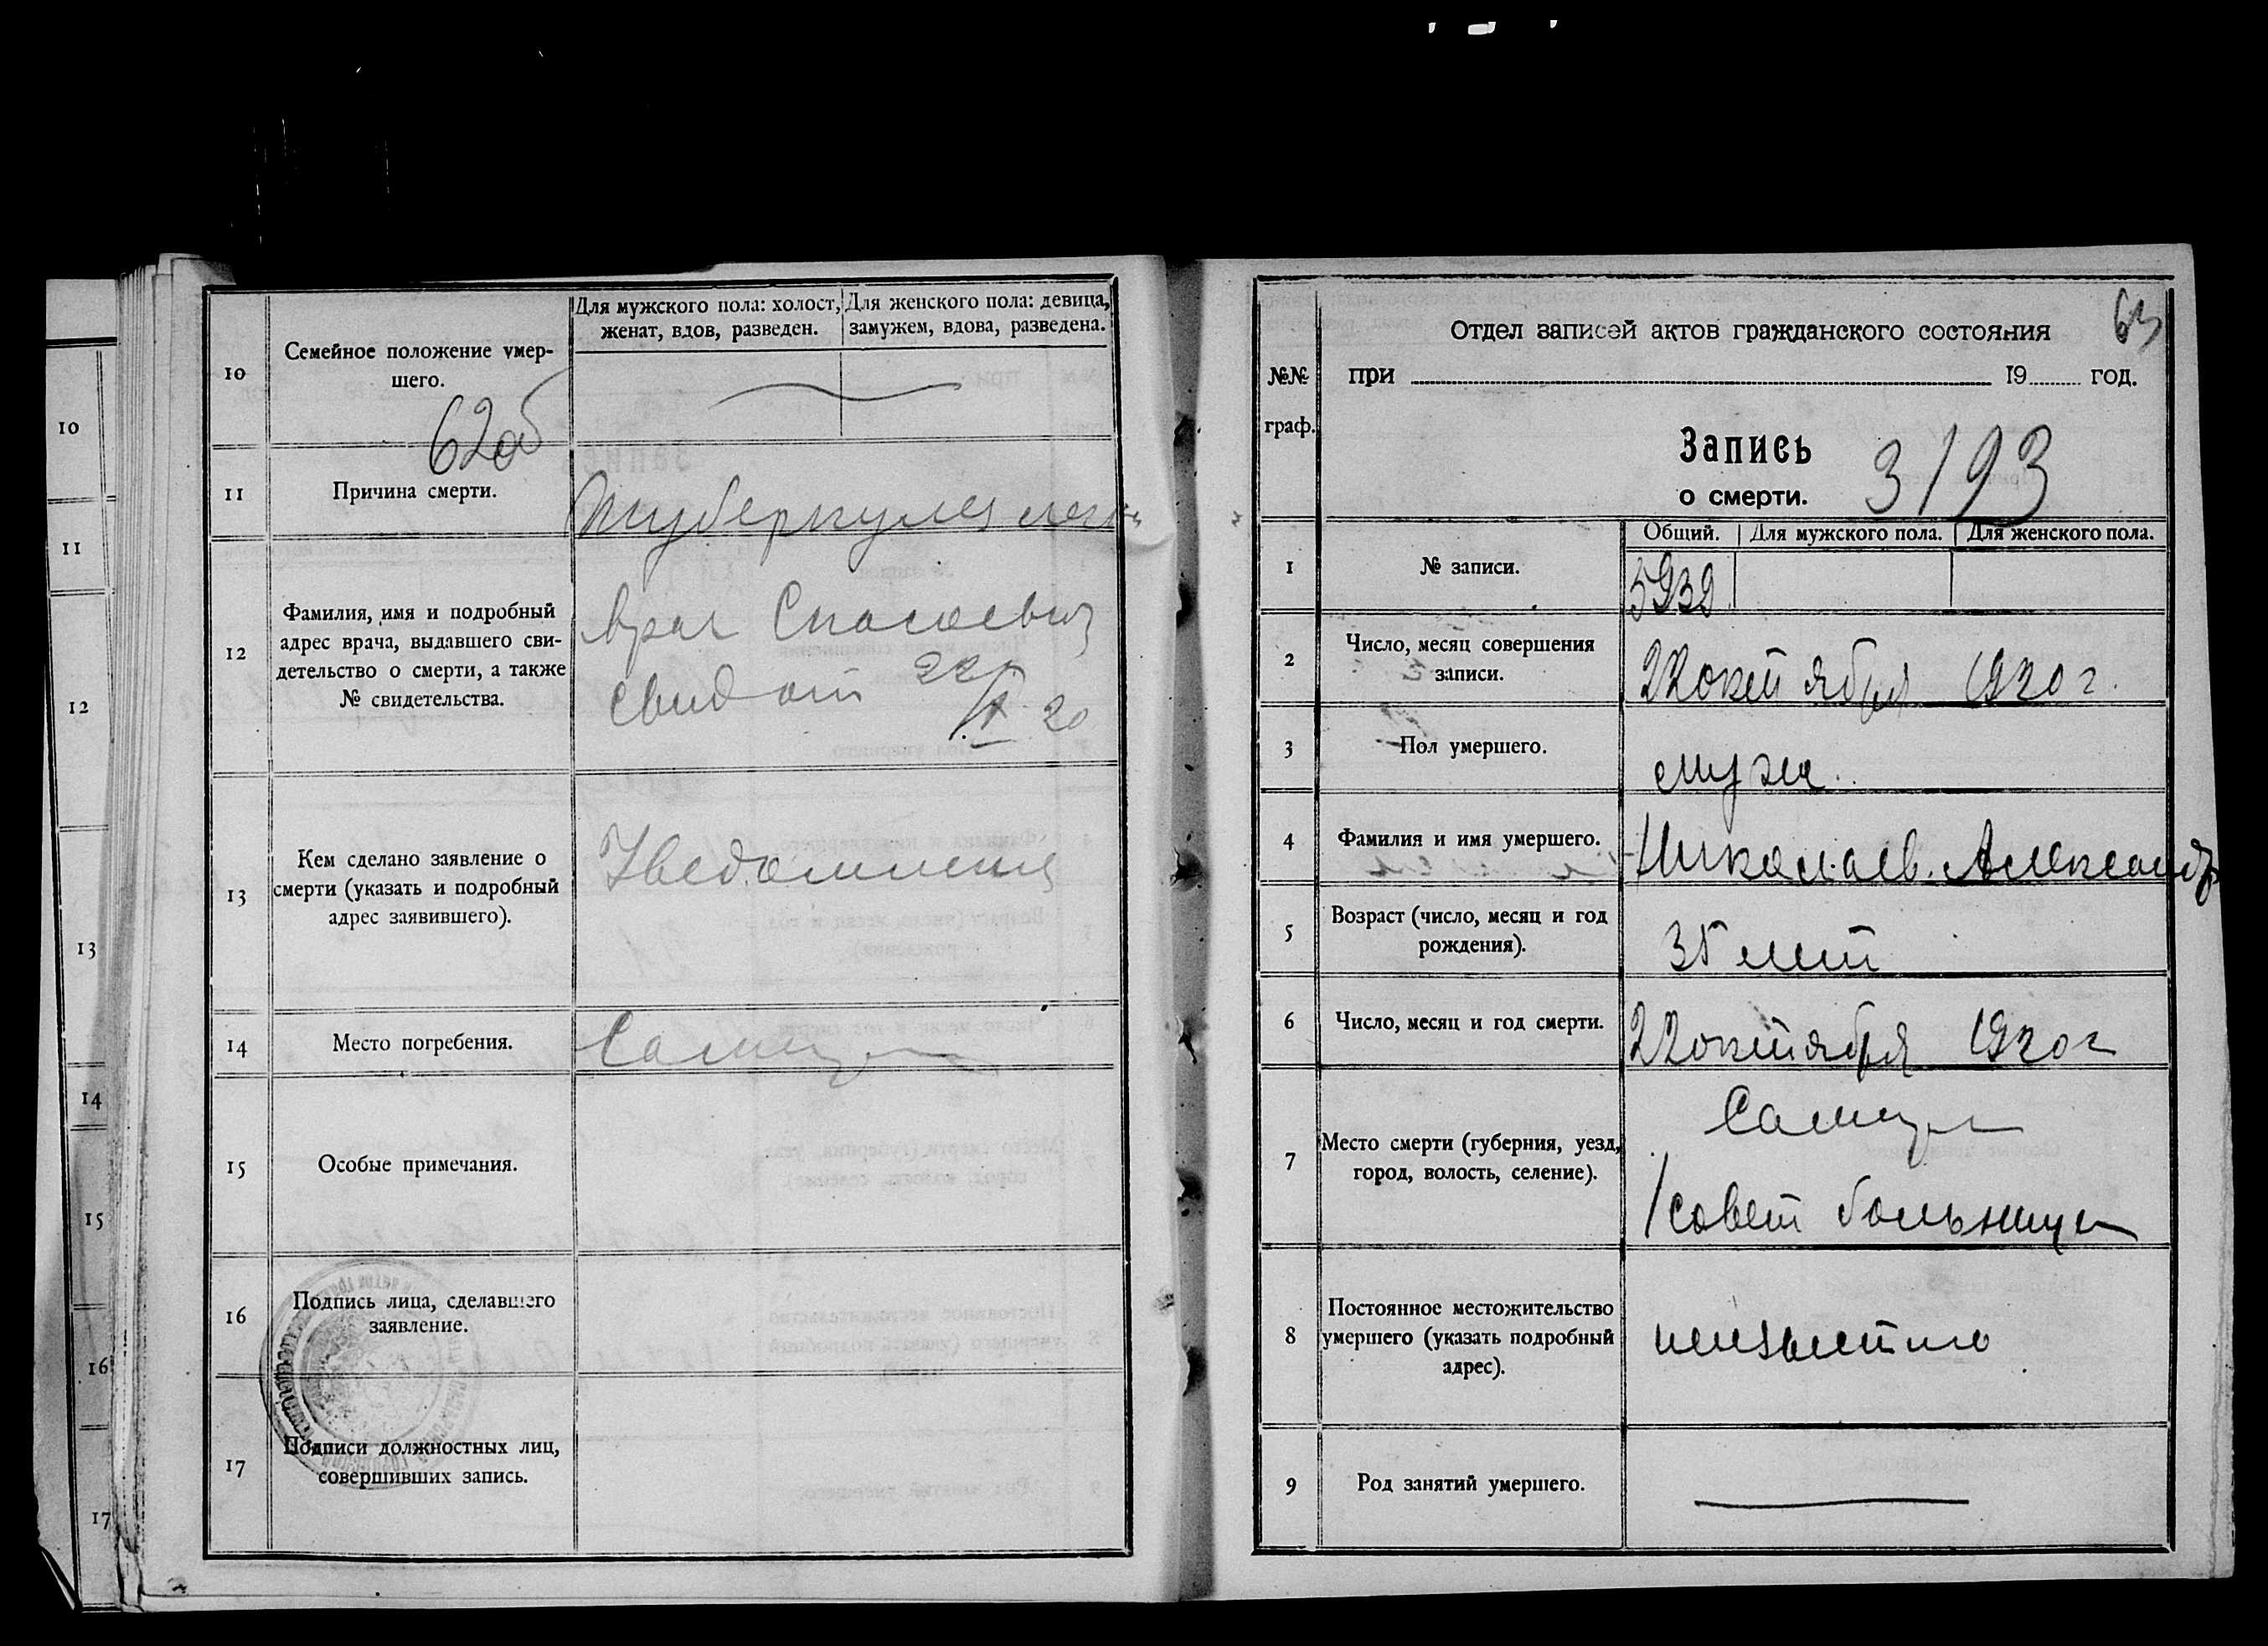 10
11
12
13
14
15
16
17
10
Семейное положение умер-
шего.
Для мужского пола: холост,
женат, вдов, разведен.
Для женского пола: девица,
замужем, вдова, разведена.
62об
11
Причина смерти.
Туберкулез легк
12
Фамилия, имя и подробный
адрес врача, выдавшего сви-
детельство о смерти, а также
№ свидетельства.
Врач
Свид от 22/X 20
13
Кем сделано заявление о
смерти (указать и подробный
адрес заявившего).
Уведомление
14
Место погребения.
15
Особые примечания.
16
Подпись лица, сделавшего
заявление.
17
Подписи должностных лиц,
совершивших запись.
63
№№
граф.
Отдел записей актов гражданского состояния
при 19 год.
Запись
о смерти.
3193
1
№ записи.
Общий.
Для мужского пола.
Для женского пола.
5939
2
Число, месяц совершения
записи.
22 октября 1920 г.
3
Пол умершего.
муж.
4
Фамилия и имя умершего.
Николаев Александр
5
Возраст (число, месяц и год
рождения).
35 лет
6
Число, месяц и год смерти.
22 октября 1920 г
7
Место смерти (губерния, уезд,
город, волость, селение).
1 совет больница
8
Постоянное местожительство
умершего (указать подробный
адрес).
неизвестно
9
Род занятий умершего.